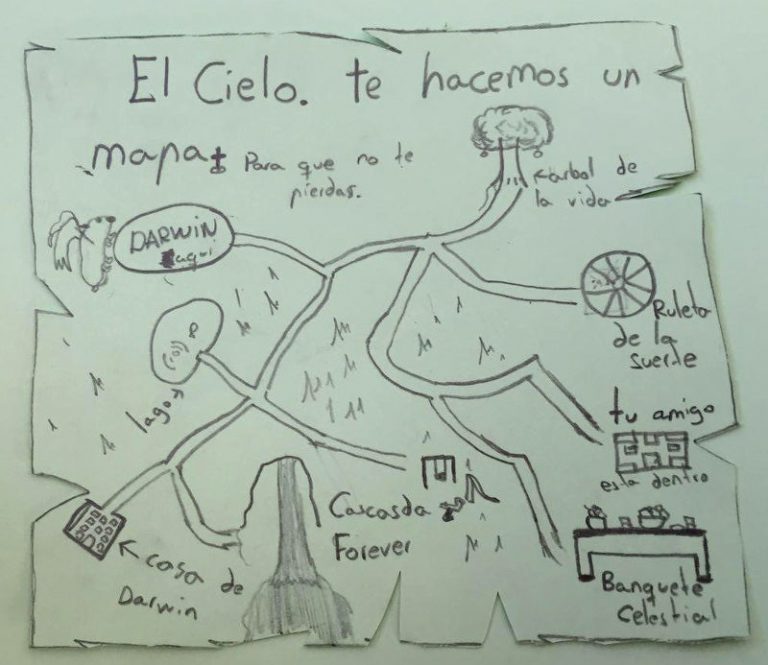 El Cielo. te hacemos un
mapa Para que no te
pierdas.
arbol de
la vida
DARWIN
aqui
Ruleta
de la
suerte
lago
tu amigo
esta dentro
Cascasda
Forever
casa de
Darwin
Banquete
Celestial